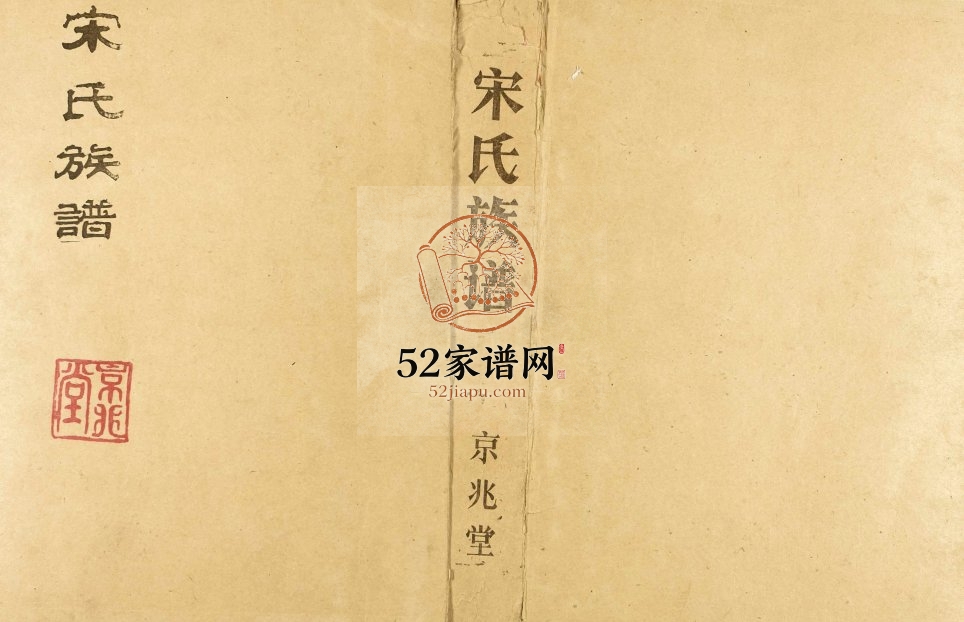 宋氏族譜
京兆堂
宋氏族譜
52家谱网
52jiapu.com
京兆堂